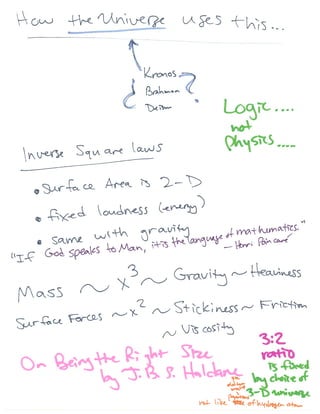 How the Universe uses this...
Kronos
Brahman
Deism
Logic....
not
Physics....
Inverse Square laws
• Surface Area is 2-D
• fixed loudness (energy)
• same with gravity
"If God speaks to Man, it is the language of mathematics."
– Henri Poincaré
Mass ~ x³ ~ Gravity ~ Heaviness
Surface Forces ~ x² ~ Stickiness ~ Friction
~ Viscosity
On Being the Right Size
by J.B.S. Haldane
3:2
ratio
is fixed
by choice of
3-D universe
not like size of hydrogen atom